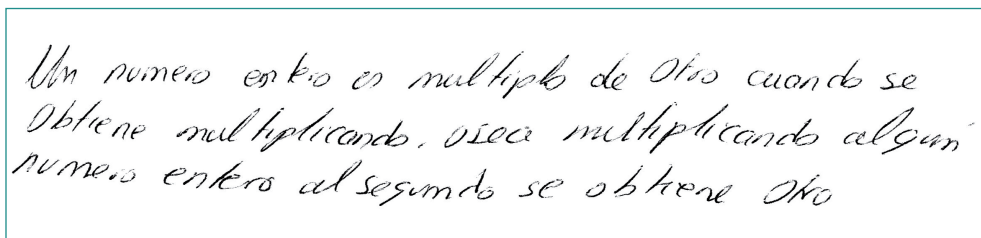 Un numero entero es multiplo de Otro cuando se
Obtiene multiplicando, osea multiplicando algun
numero entero al segundo se obtiene Otro